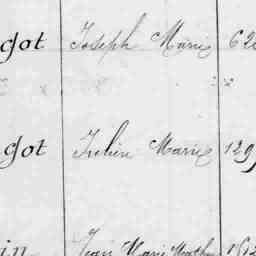 got Joseph Marie 62
got Julien Marie 129
in Jean Marie Math 161